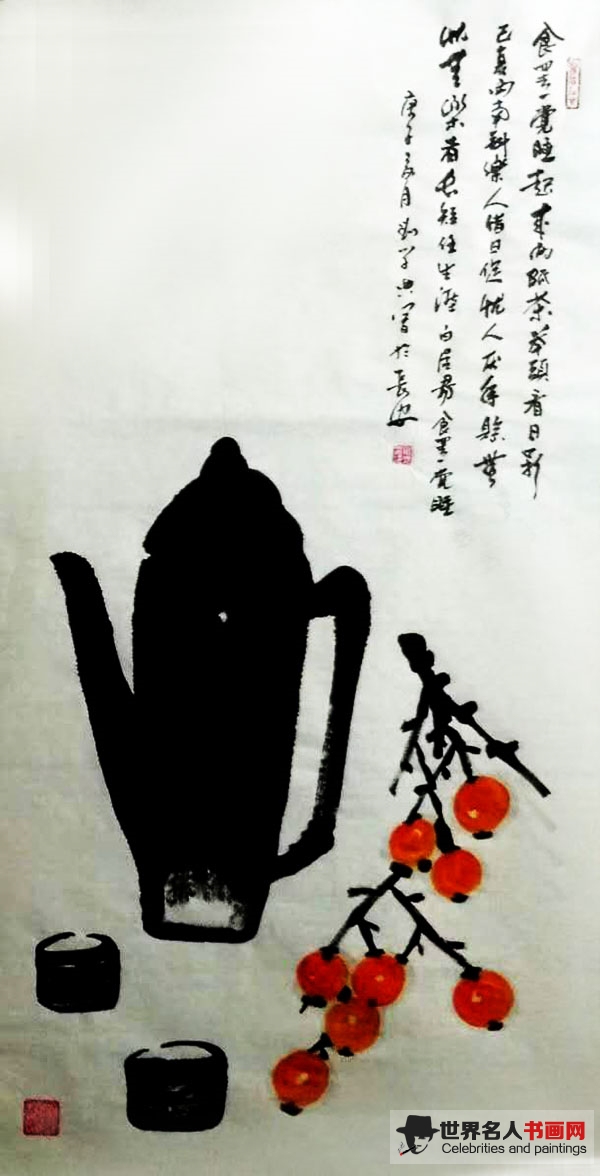 食罷一覺睡起来两瓯茶举頭看日影
已复西南斜樂人惜日促忧人厌年赊無
忧無樂者长短任生涯白居易食罷一覺睡
庚子夏月 写於長安
世界名人书画网
Celebrities and paintings